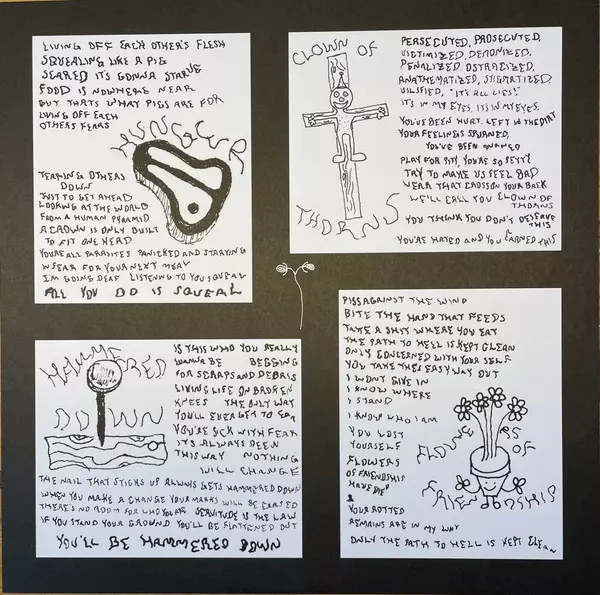 LIVING OFF EACH OTHER'S FLESH
SQUEALING LIKE A PIG
SCARED IT'S GONNA STARVE
FOOD IS NOWHERE NEAR
BUT THATS WHAT PIGS ARE FOR
LIVING OFF EACH
OTHERS FEARS
HUNGEUR
TEARING OTHERS
DOWN
JUST TO GET AHEAD
LOOKING AT THE WORLD
FROM A HUMAN PYRAMID
A CROWN IS ONLY BUILT
TO FIT ONE HEAD
YOU'RE ALL PARASITES PANICKED AND STARVING
IN FEAR FOR YOUR NEXT MEAL
I'M GOING DEAF LISTENING TO YOU SQUEAL
ALL YOU DO IS SQUEAL
CLOWN OF
THORNS
PERSECUTED, PROSECUTED,
VICTIMIZED, DEMONIZED,
PENALIZED, OSTRACIZED,
ANATHEMATIZED, STIGMATIZED,
VILIFIED, "IT'S ALL LIES!"
IT'S IN MY EYES, ITS IN MY EYES.
YOU'VE BEEN HURT. LEFT IN THE DIRT
YOUR FEELINGS SPURNED,
YOU'VE BEEN
PLAY FOR PITY, YOU'RE SO PETTY
TRY TO MAKE US FEEL BAD
WEAR THAT CROSS ON YOUR BACK
WE'LL CALL YOU CLOWN OF
THORNS
YOU THINK YOU DON'T DESERVE
THIS
YOU'RE HATED AND YOU EARNED THIS
HAMMERED
DOWN
IS THIS WHO YOU REALLY
WANNA BE BEGGING
FOR SCRAPS AND DEBRIS
LIVING LIFE ON BROKEN
KNEES THE ONLY WAY
YOU'LL EVER GET TO EAT
YOU'RE SICK WITH FEAR
IT'S ALWAYS BEEN
THIS WAY NOTHING
WILL CHANGE
THE NAIL THAT STICKS UP ALWAYS GETS HAMMERED DOWN
WHEN YOU MAKE A CHANGE YOUR MARKS WILL BE ERASED
THERE'S NO ROOM FOR WHO YOU ARE SERVITUDE IS THE LAW
IF YOU STAND YOUR GROUND YOU'LL BE FLATTENED OUT
YOU'LL BE HAMMERED DOWN
PISS AGAINST THE WIND
BITE THE HAND THAT FEEDS
TAKE A SHIT WHERE YOU EAT
THE PATH TO HELL IS KEPT CLEAN
ONLY CONCERNED WITH YOUR SELF
YOU TAKE THE EASY WAY OUT
I WONT GIVE IN
I KNOW WHERE
I STAND
I KNOW WHO I AM
YOU LOST
YOURSELF
FLOWERS
OF FRIENDSHIP
HAVE DIED
&
YOUR ROTTED
REMAINS ARE IN MY WAY
ONLY THE PATH TO HELL IS KEPT CLEAN
FLOWERS OF
FRIENDSHIP